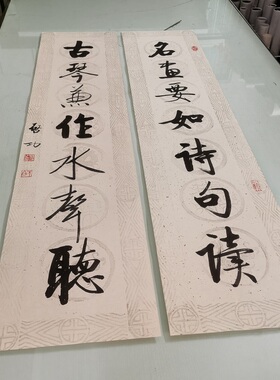 名画要如诗句读
古琴兼作水聲聽
启功